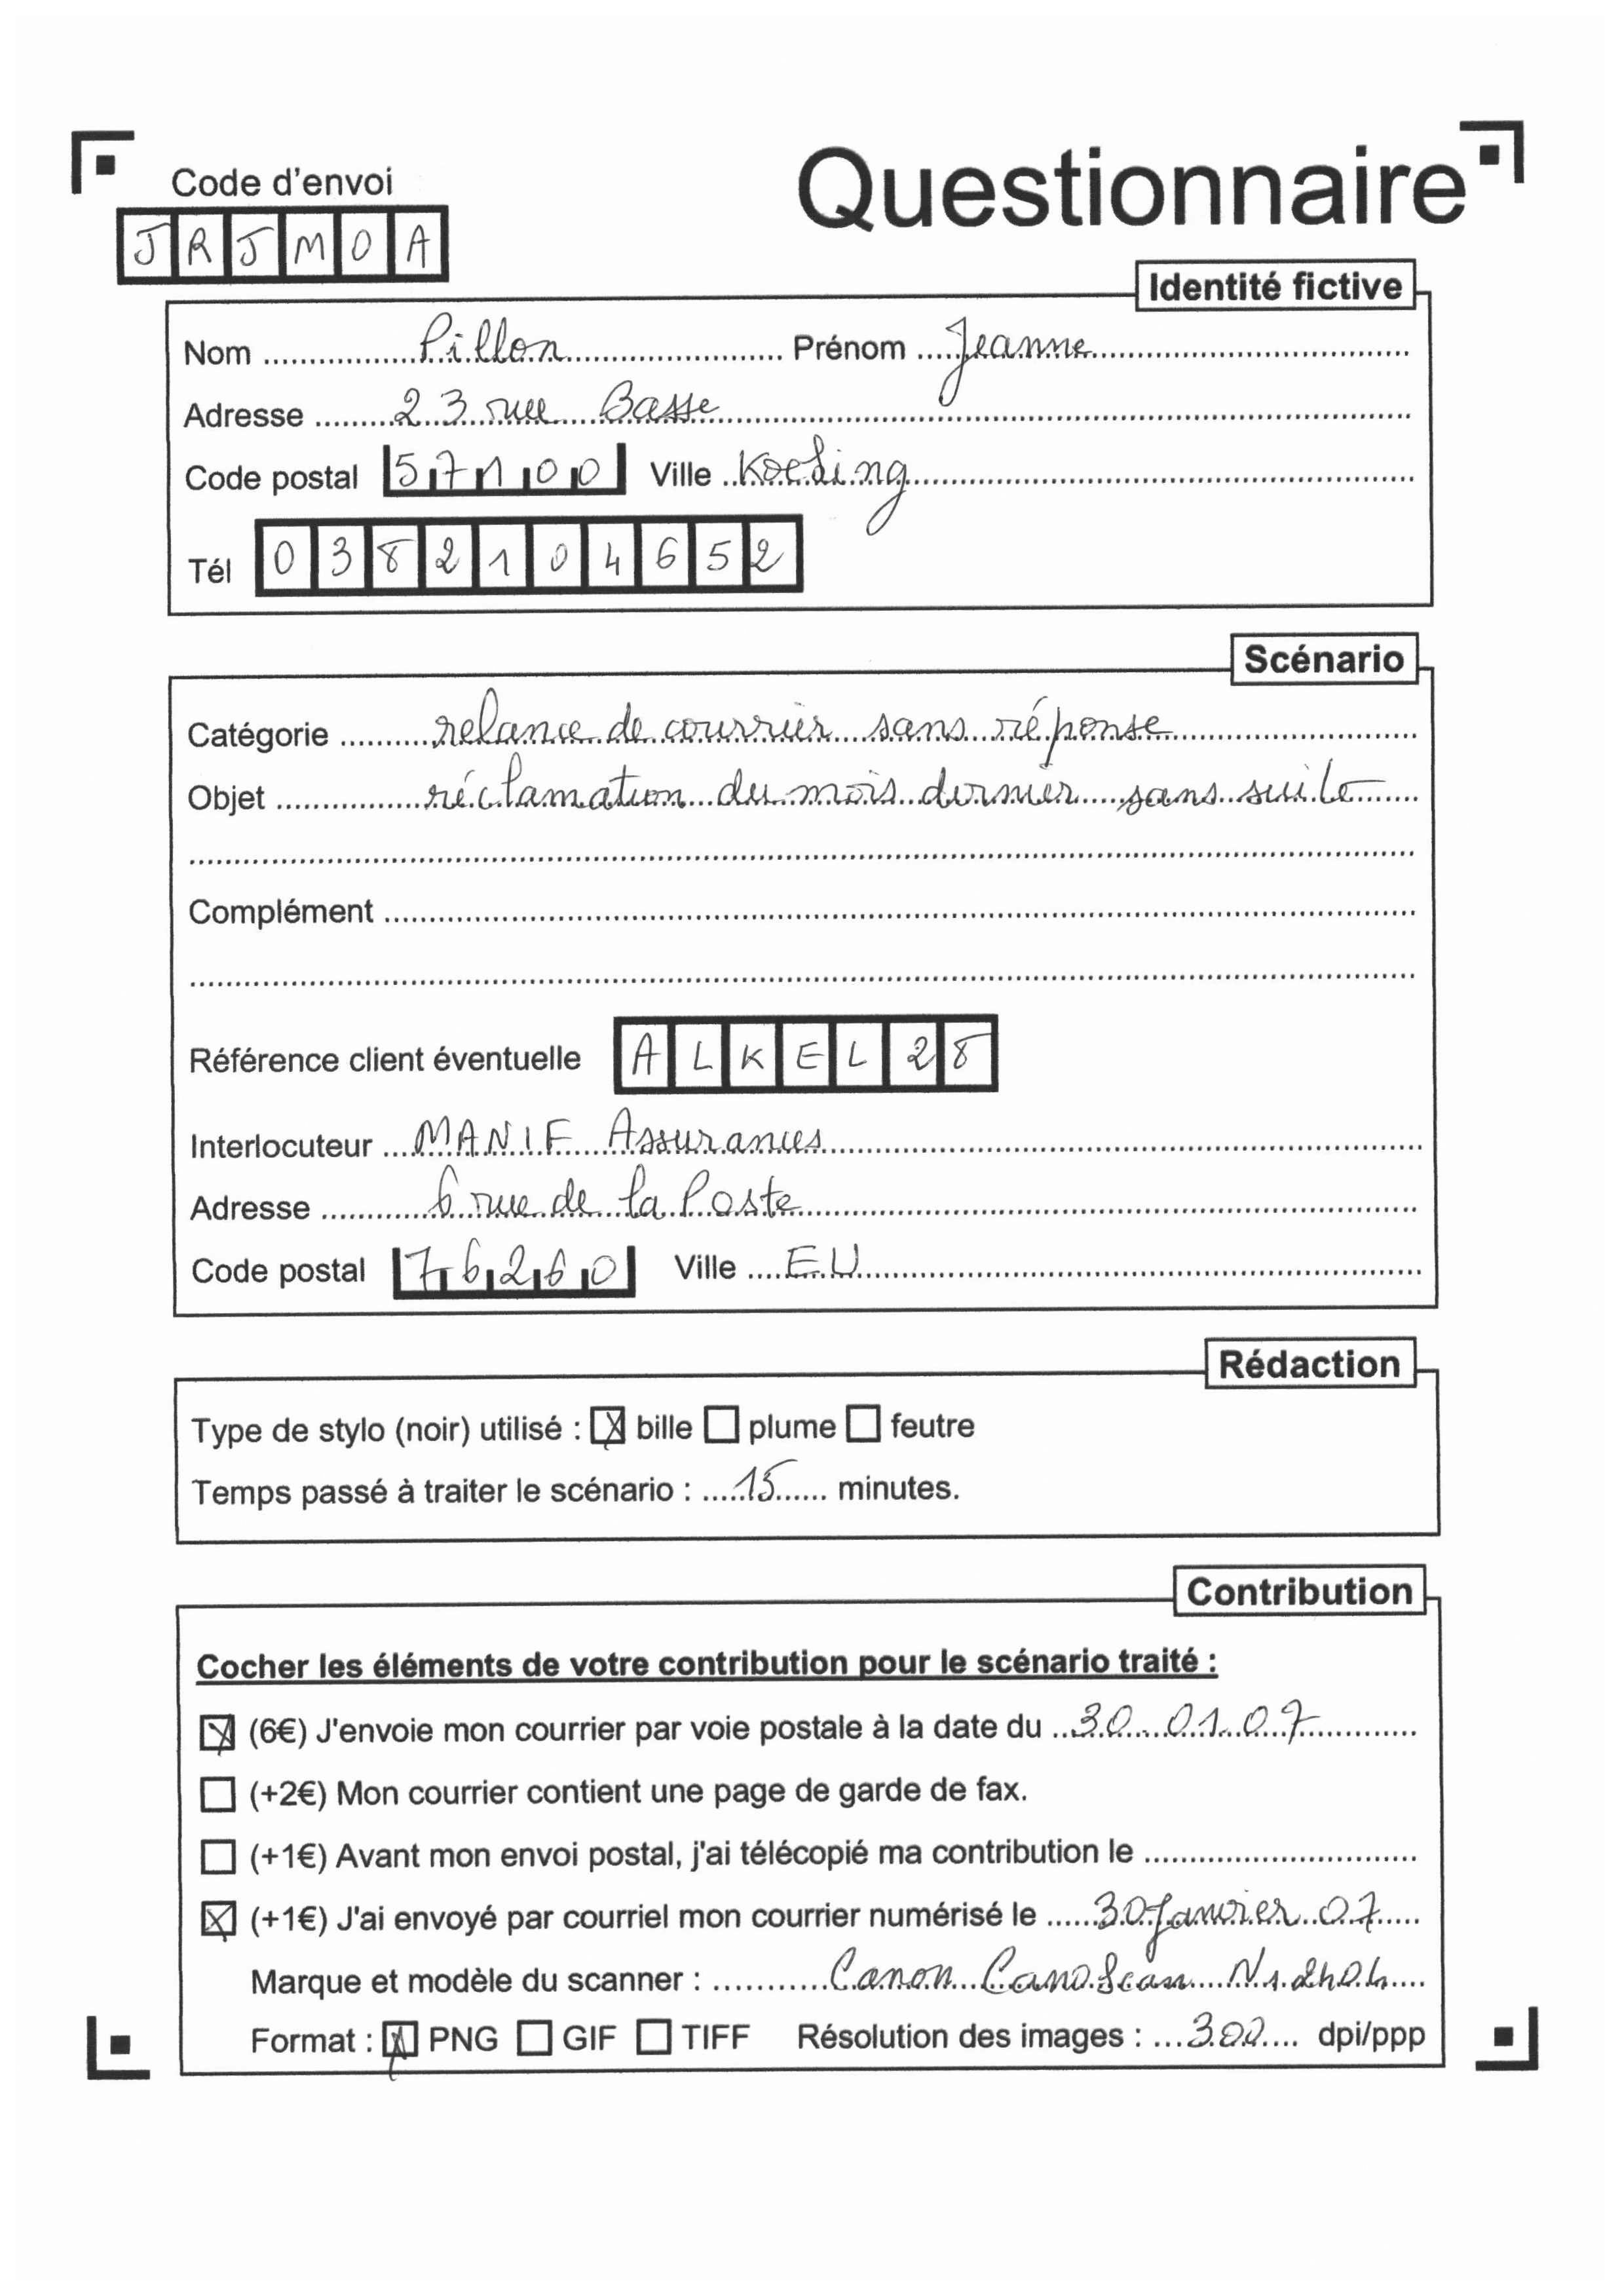 Code d'envoi
Questionnaire
JRJMOA
Identité fictive
Nom Pillon Prénom Jeanne
Adresse 23 rue Basse
Code postal 57100 Ville Koeking
Tél 0382104652
Scénario
Catégorie relance de courrier sans réponse
Objet réclamation du mois dernier sans suite
Complément
Référence client éventuelle ALKEL28
Interlocuteur MANIF Assurances
Adresse 6 rue de la Poste
Code postal 76260 Ville EU
Rédaction
Type de stylo (noir) utilisé : bille plume feutre
Temps passé à traiter le scénario : 15 minutes.
Contribution
Cocher les éléments de votre contribution pour le scénario traité :
(6€) J'envoie mon courrier par voie postale à la date du 30 01 07
(+2€) Mon courrier contient une page de garde de fax.
(+1€) Avant mon envoi postal, j'ai télécopié ma contribution le
(+1€) J'ai envoyé par courriel mon courrier numérisé le 30 janvier 07
Marque et modèle du scanner : Canon CanoScan
Format : PNG GIF TIFF Résolution des images : 300 dpi/ppp